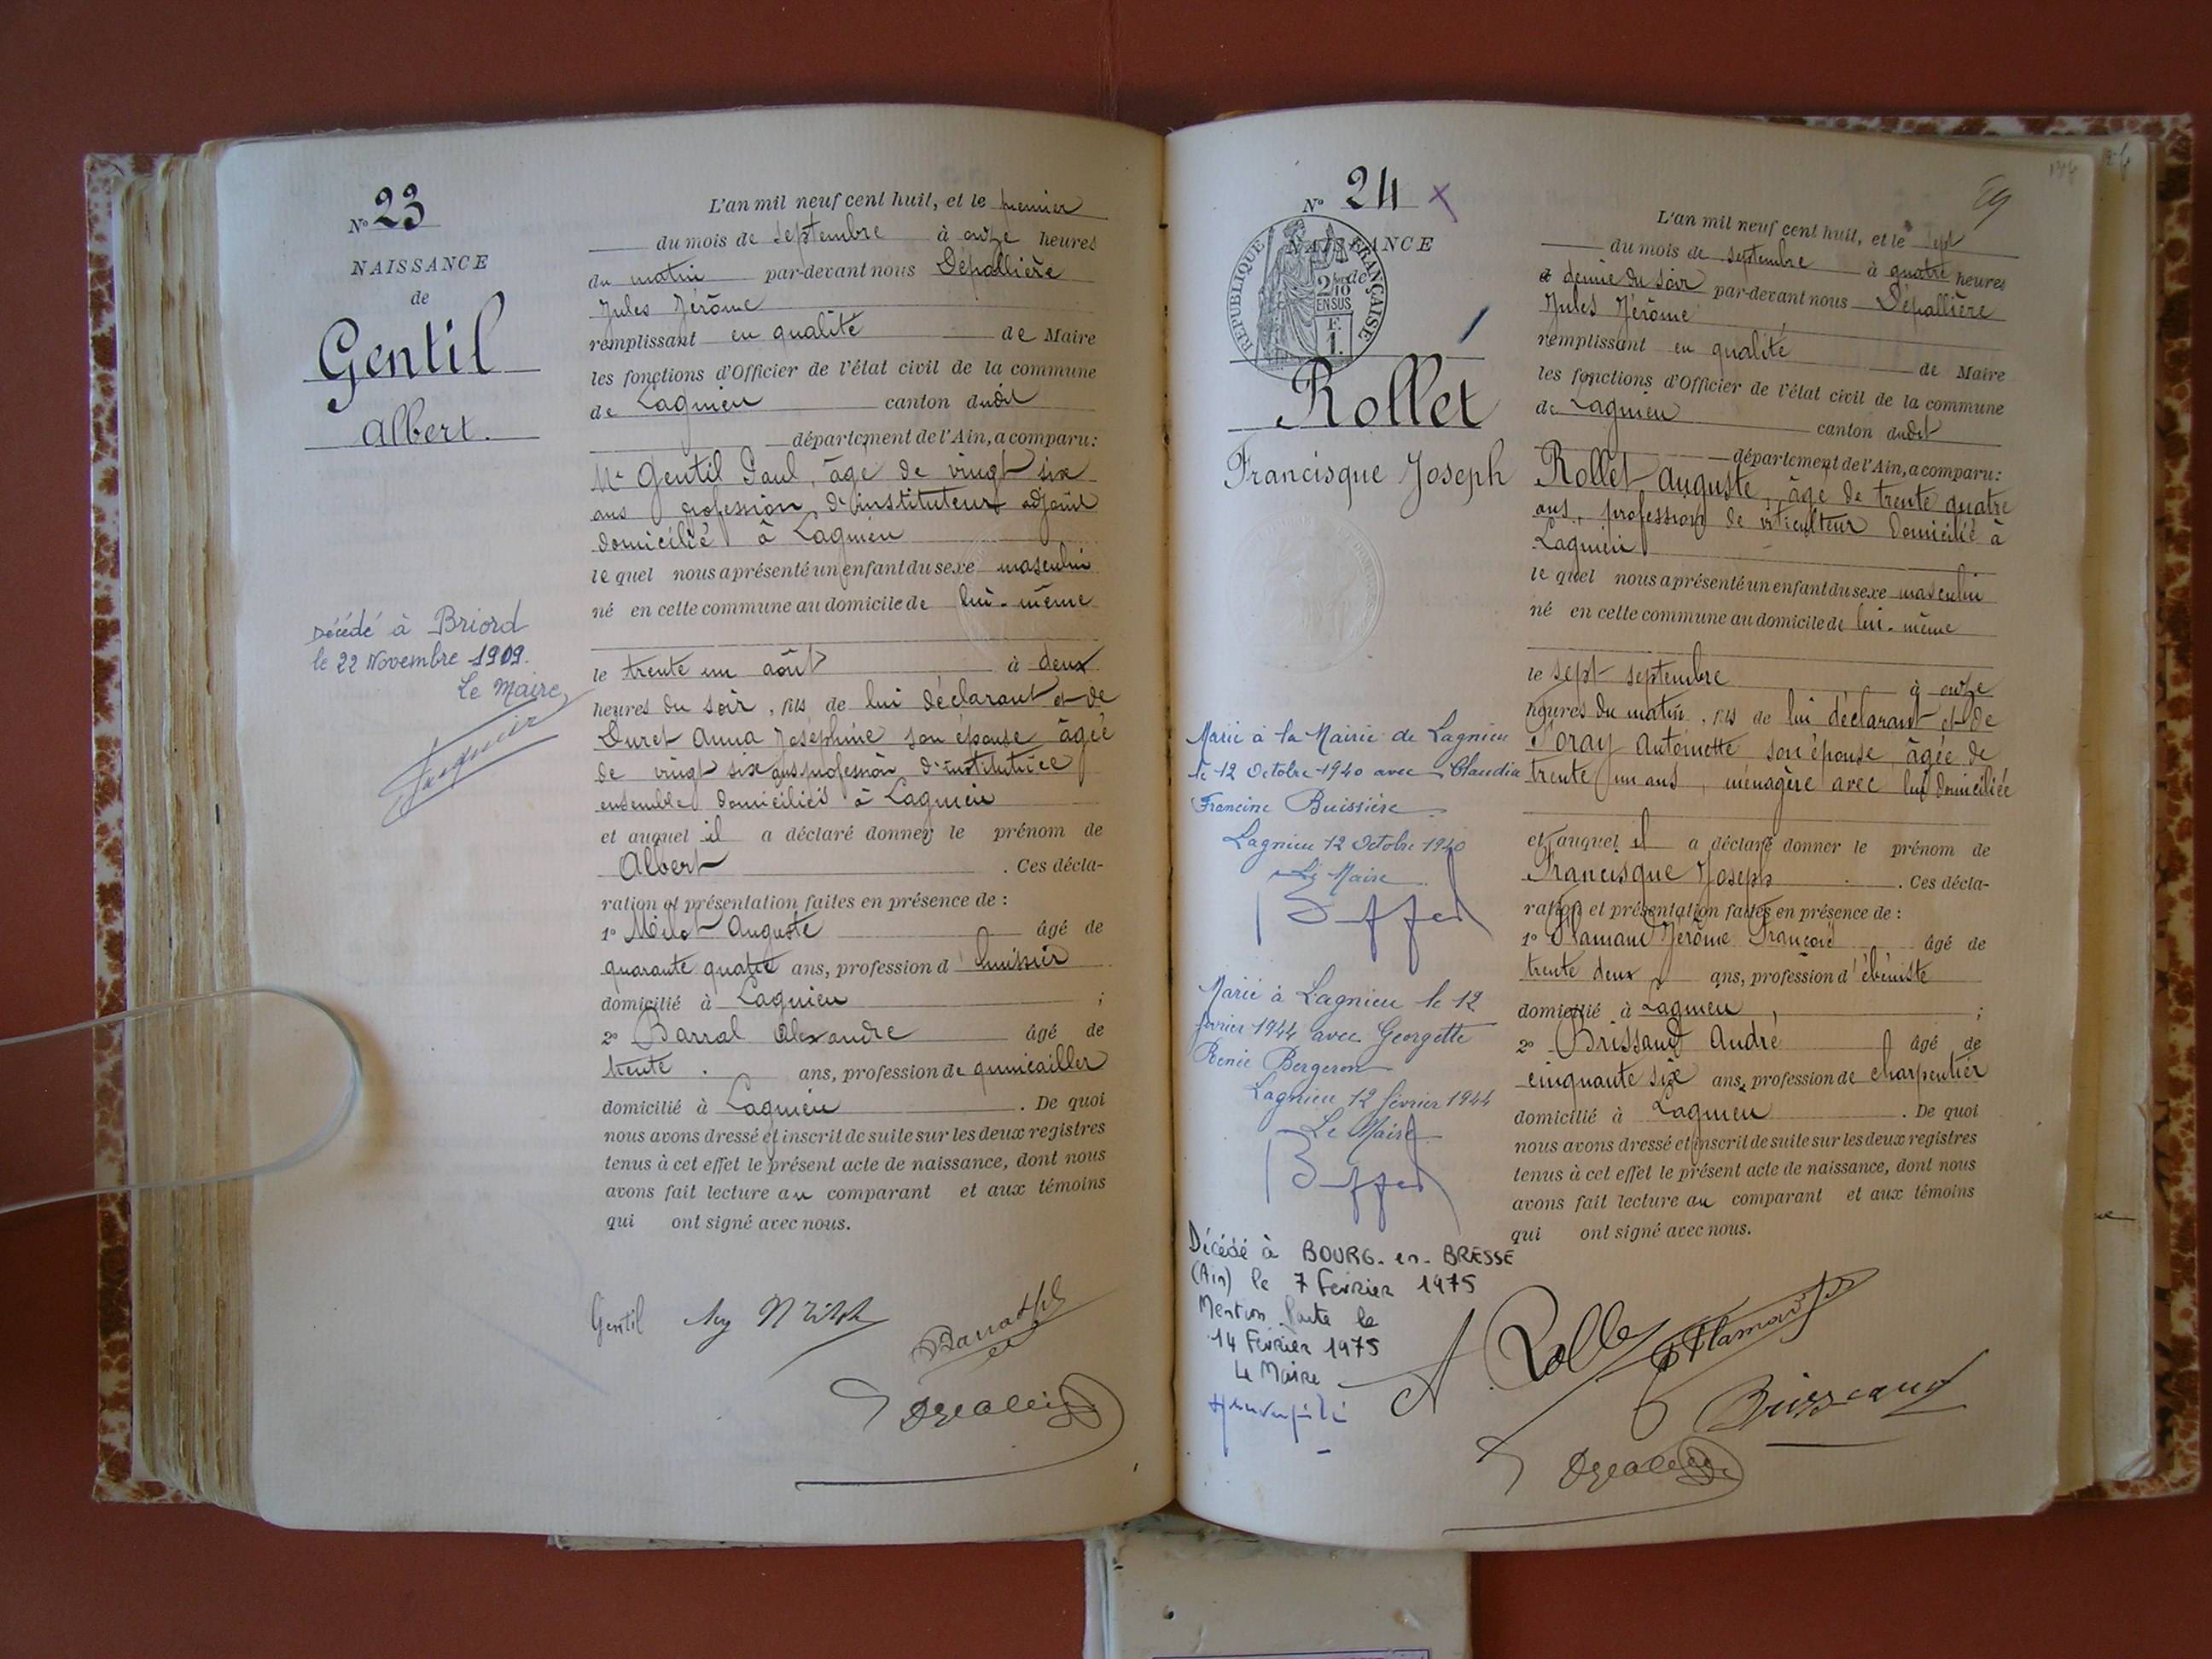 N° 23
NAISSANCE
de
Gentil
Albert.
Décédé à Briord
le 22 Novembre 1909.
Le Maire,
L'an mil neuf cent huit, et le premier
du mois de septembre à onze heures
du matin par-devant nous Dépallière
Jules Jérôme
remplissant en qualité de Maire
les fonctions d'Officier de l'état civil de la commune
de Lagnieu canton dudit
département de l'Ain, a comparu:
Mr Gentil Paul, âgé de vingt six
ans profession d'instituteur adjoint
domicilié à Lagnieu
le quel nous a présenté un enfant du sexe masculin
né en cette commune au domicile de lui-même
le trente un août à deux
heures du soir, fils de lui déclarant et de
Duret Anna Joséphine son épouse âgée
de vingt six ans profession d'institutrice
ensemble domiciliés à Lagnieu
et auquel il a déclaré donner le prénom de
Albert . Ces décla-
ration et présentation faites en présence de :
1° Milot Auguste âgé de
quarante quatre ans, profession d'huissier
domicilié à Lagnieu ;
2° Barral Alexandre âgé de
trente . ans, profession de quincailler
domicilié à Lagnieu . De quoi
nous avons dressé et inscrit de suite sur les deux registres
tenus à cet effet le présent acte de naissance, dont nous
avons fait lecture au comparant et aux témoins
qui ont signé avec nous.
Gentil
N° 24 X
NAISSANCE
de
RÉPUBLIQUE FRANÇAISE
2/10
EN SUS
F.
1.
Rollet
Francisque Joseph
Marié à la Mairie de Lagnieu
le 12 Octobre 1940 avec Claudia
Francine Buissière
Lagnieu 12 Octobre 1940
Le Maire
Marié à Lagnieu le 12
février 1944 avec Georgette
Renée Bergeron
Lagnieu 12 février 1944
Le Maire
Décédé à BOURG-en-BRESSE
(Ain) le 7 Février 1975
Mention faite le
14 Février 1975
Le Maire
89
L'an mil neuf cent huit, et le sept
du mois de septembre à quatre heures
et demie du soir par-devant nous Dépallière
Jules Jérôme
remplissant en qualité de Maire
les fonctions d'Officier de l'état civil de la commune
de Lagnieu canton dudit
département de l'Ain, a comparu:
Rollet Auguste, âgé de trente quatre
ans, profession de viticulteur domicilié à
Lagnieu
le quel nous a présenté un enfant du sexe masculin
né en cette commune au domicile de lui-même
le sept septembre à onze
heures du matin, fils de lui déclarant et de
Antoinette son épouse, âgée de
trente un ans, ménagère avec lui domiciliée
et auquel il a déclaré donner le prénom de
Francisque Joseph . Ces décla-
ration et présentation faites en présence de :
1° Flamand Jérôme François âgé de
trente deux ans, profession d'ébéniste
domicilié à Lagnieu ;
2° Brissaud André âgé de
cinquante six ans, profession de charpentier
domicilié à Lagnieu . De quoi
nous avons dressé et inscrit de suite sur les deux registres
tenus à cet effet le présent acte de naissance, dont nous
avons fait lecture au comparant et aux témoins
qui ont signé avec nous.
A Rollet